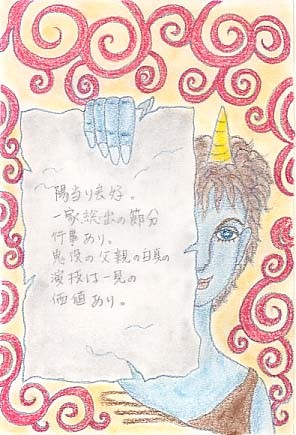 陽当り良好。
一家総出の節分
行事あり。
鬼役の父親の白真の
演技は一見の
価値あり。